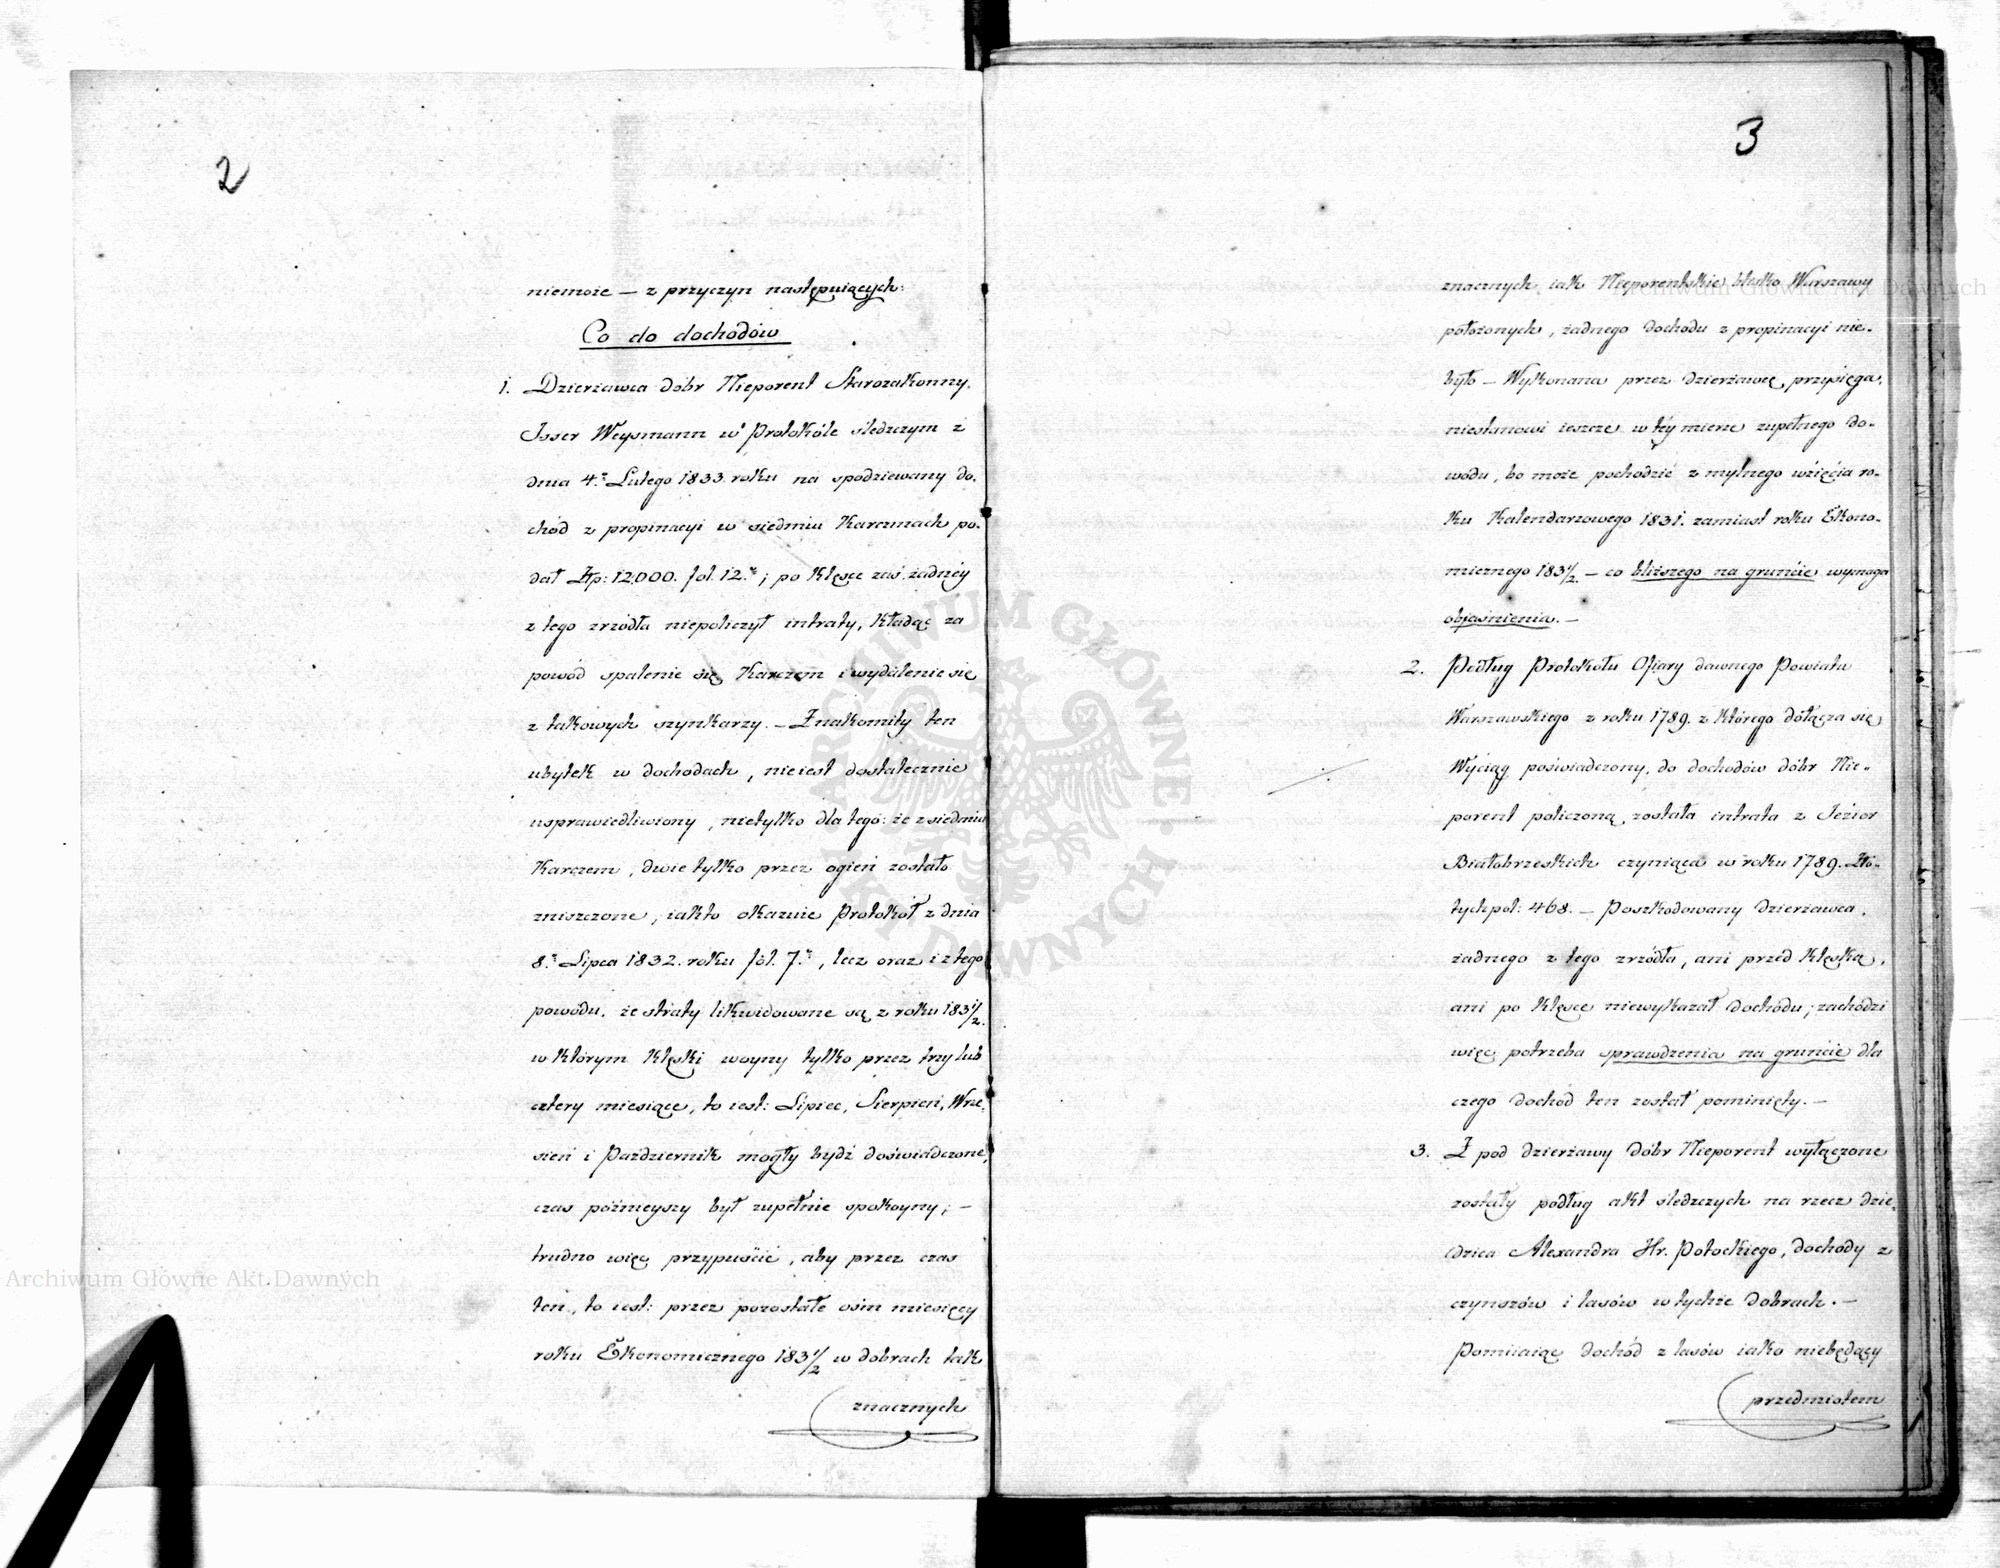 2
niemoże — z przyczyn następuiących:
Co do dochodów
1. Dzierżawca dóbr Nieporent Starozakonny,
Isser Weysmann w Protokóle śledczym z
dnia 4.º Lutego 1833. roku na spodziewany do-
chód z propinacyi w siedmiu Karczmach po-
dał Złp: 12,000. fol. 12.º; po klęsce zaś żadnéy
z tego zrzódła niepoliczył intraty, kładąc za
powód spalenie się Karczem i wydalenie się
z takowych szynkarzy. — Znakomity ten
ubytek w dochodach, nieiest dostatecznie
usprawiedliwiony, nietylko dla tego: że z siedmiu
Karczem, dwie tylko przez ogień zostało
zniszczone, iak to okazuie Protokół z dnia
8.º Lipca 1832. roku fol. 7.º, lecz oraz i z tego
powodu, że straty likwidowane są z roku 1831/2.
w którym klęski woyny tylko przez trzy lub
cztery miesiące, to iest: Lipiec, Sierpień, Wrze-
sień i Pazdziernik mogły bydź doświadczone,
czas póżnieyszy był zupełnie spokoyny; —
trudno więc przypuścić, aby przez czas
ten, to iest: przez pozostałe ośm miesięcy
roku Ekonomicznego 1831/2 w dobrach tak
znacznych
3
znacznych iak Nieporentskie blisko Warszawy
położonych, żadnego dochodu z propinacyi nie-
było — Wykonana przez dzierżawcę przysięga,
niestanowi ieszcze w téy mierze zupełnego do-
wodu, bo może pochodzić z mylnego wzięcia ro-
ku Kalendarzowego 1831. zamiast roku Ekono-
micznego 1831/2. — co bliższego na gruncie wymaga
objaśnienia. —
2. Podług Protokołu Ofiary dawnego Powiatu
Warszawskiego z roku 1789. z którego dołącza się
Wyciąg poświadczony, do dochodów dóbr Nie-
porent policzoną, została intrata z Jeziór
Białobrzeskich czyniąca w roku 1789. Zło-
tych pol: 468. — Poszkodowany dzierżawca,
żadnego z tego zrzódła, ani przed klęską,
ani po klęsce niewykazał dochodu; zachodzi
więc potrzeba sprawdzenia na gruncie dla
czego dochód ten został pominięty. —
3. Z pod dzierżawy dóbr Nieporent wyłączone
zostały podług akt śledczych na rzecz dzie-
dzica Alexandra Hr. Potockiego, dochody z
czynszów i lasów w tychże dobrach. —
Pomiiaiąc dochód z lasów iako niebędący
przedmiotem
Archiwum Główne Akt Dawnych
Archiwum Główne Akt Dawnych
ARCHIWUM GŁÓWNE AKT DAWNYCH